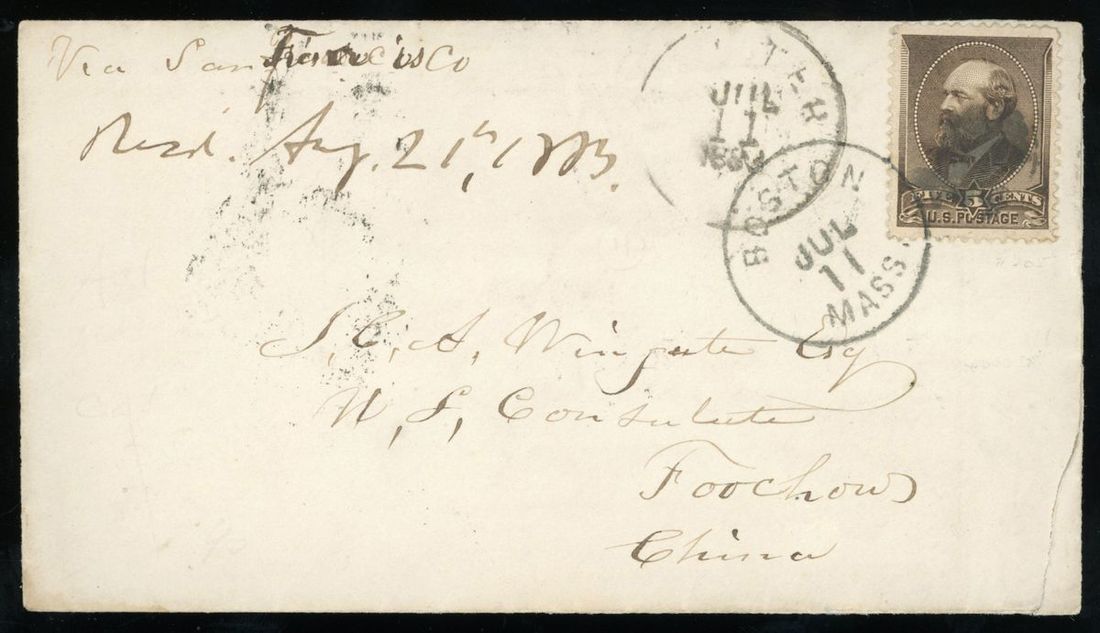 Via San Francisco
Recd. Aug. 21st, 1883.
JUL
11
1883
BOSTON
JUL
11
MASS.
FIVE 5 CENTS
U.S. POSTAGE
J. C. A. Wingate Esq
U, S, Consulate
Foochow
China